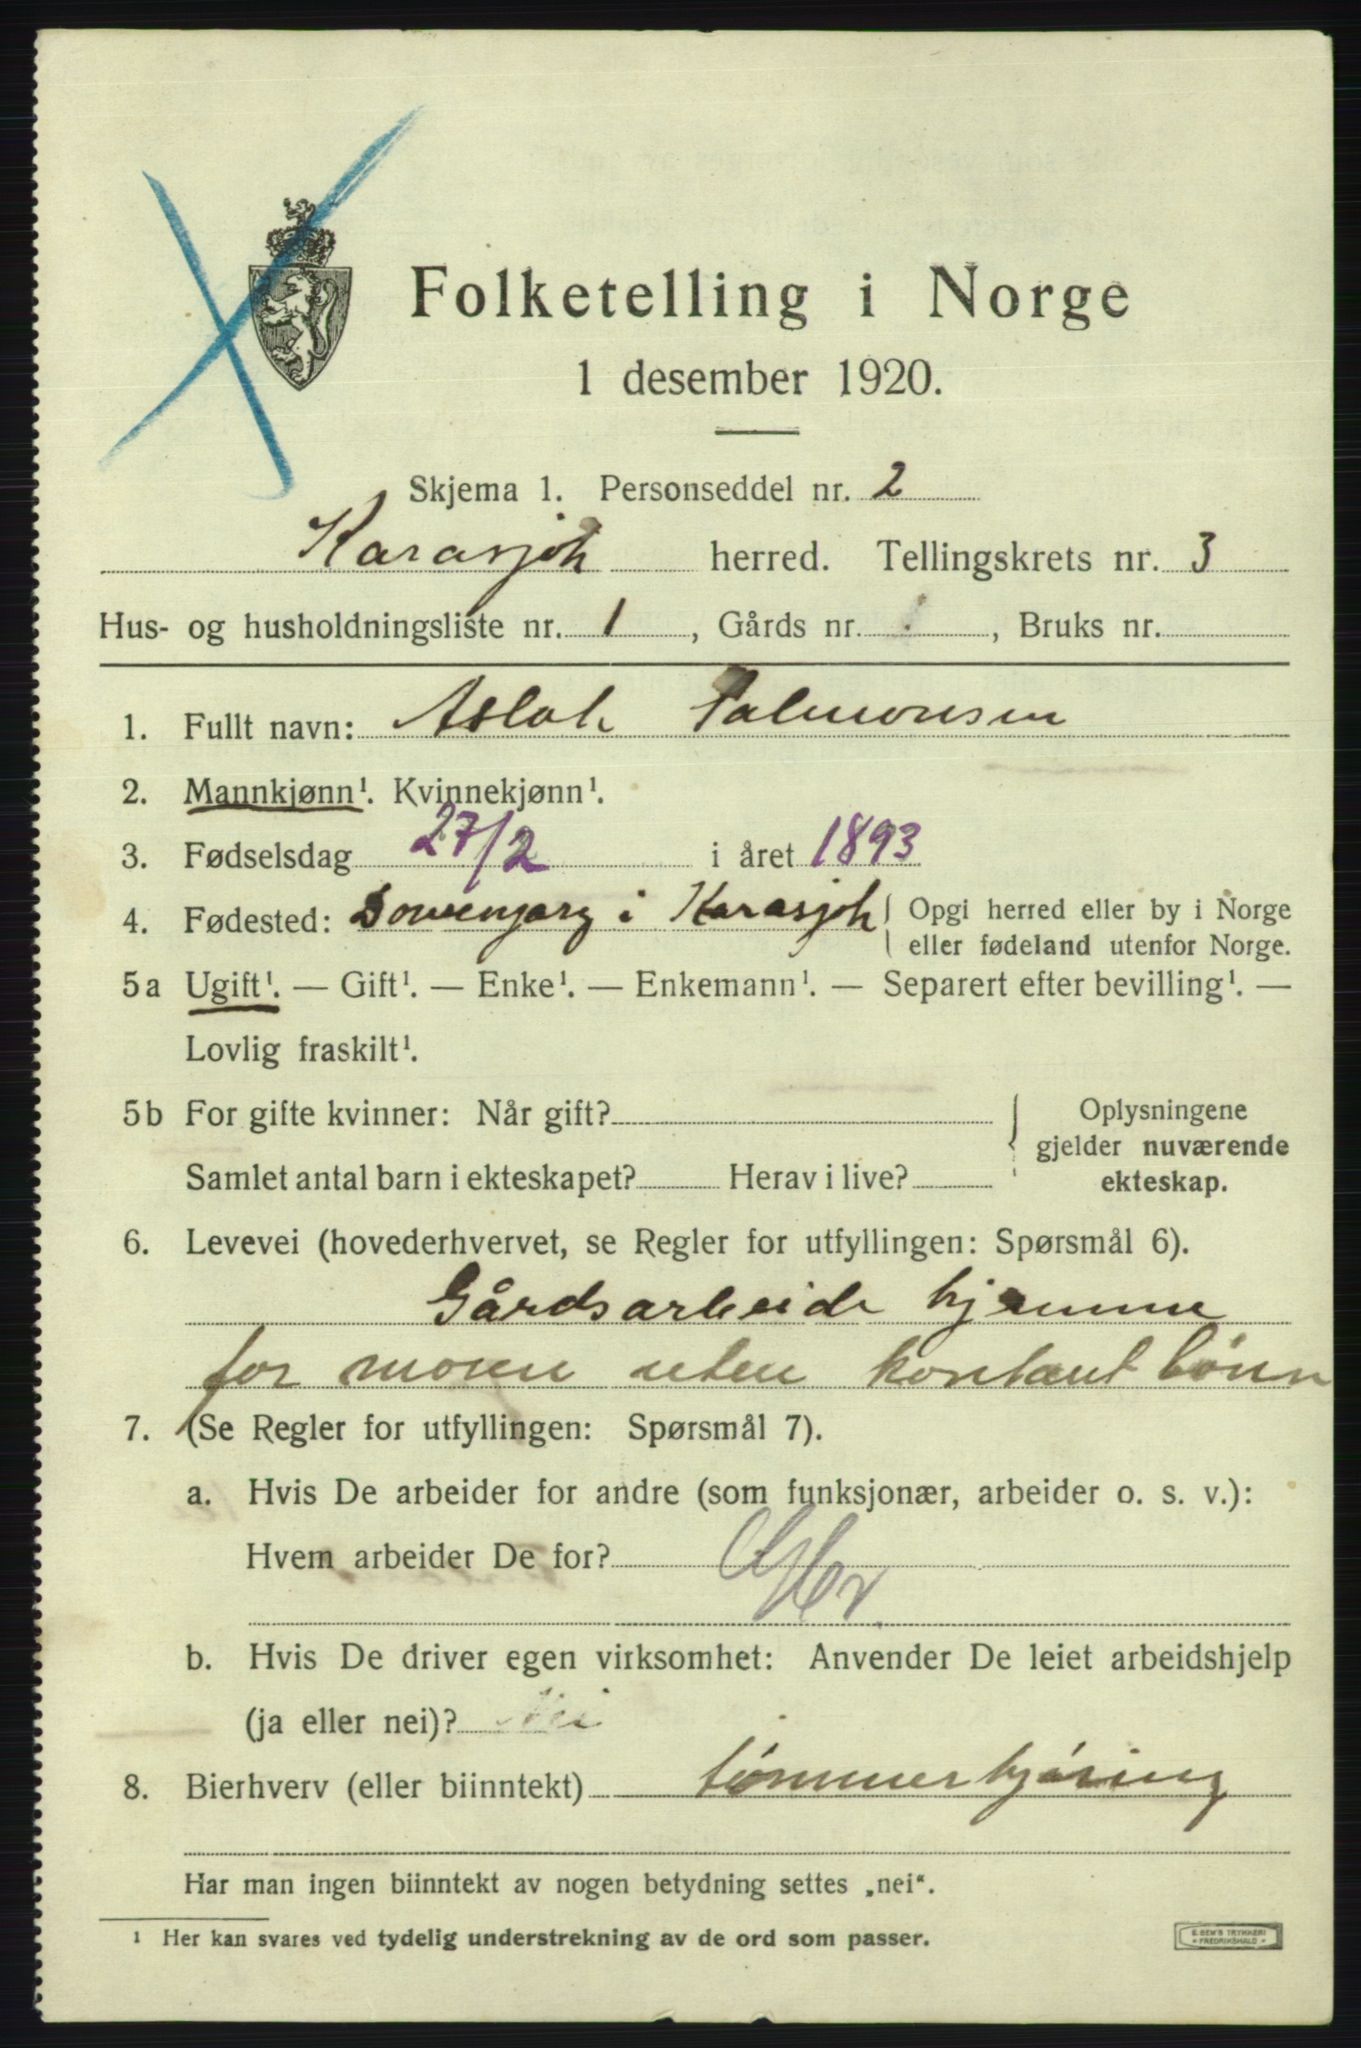 Folketelling i Norge
1 desember 1920.
Skjema 1. Personseddel nr. 2
Karasjok herred. Tellingskrets nr. 3
Hus- og husholdningsliste nr. 1, Gårds nr. , Bruks nr.
1. Fullt navn: Aslak Salmonsen
2. Mannkjønn¹. Kvinnekjønn¹.
3. Fødselsdag 27/2 i året 1893
4. Fødested: i Karasjok Opgi herred eller by i Norge
eller fødeland utenfor Norge.
5a Ugift¹. — Gift¹. — Enke¹. — Enkemann¹. — Separert efter bevilling¹. —
Lovlig fraskilt¹.
5b For gifte kvinner: Når gift? Oplysningene
gjelder nuværende
Samlet antal barn i ekteskapet? Herav i live? ekteskap.
6. Levevei (hovederhvervet, se Regler for utfyllingen: Spørsmål 6).
Gårdsarbeide hjemme
for moren uten kontant lønn
7. (Se Regler for utfyllingen: Spørsmål 7).
a. Hvis De arbeider for andre (som funksjonær, arbeider o. s. v.):
Hvem arbeider De for?
b. Hvis De driver egen virksomhet: Anvender De leiet arbeidshjelp
(ja eller nei)? Nei
8. Bierhverv (eller biinntekt) tømmerkjøring
Har man ingen biinntekt av nogen betydning settes „nei“.
¹ Her kan svares ved tydelig understrekning av de ord som passer.
E. SEM'S TRYKKERI
FREDRIKSHALD